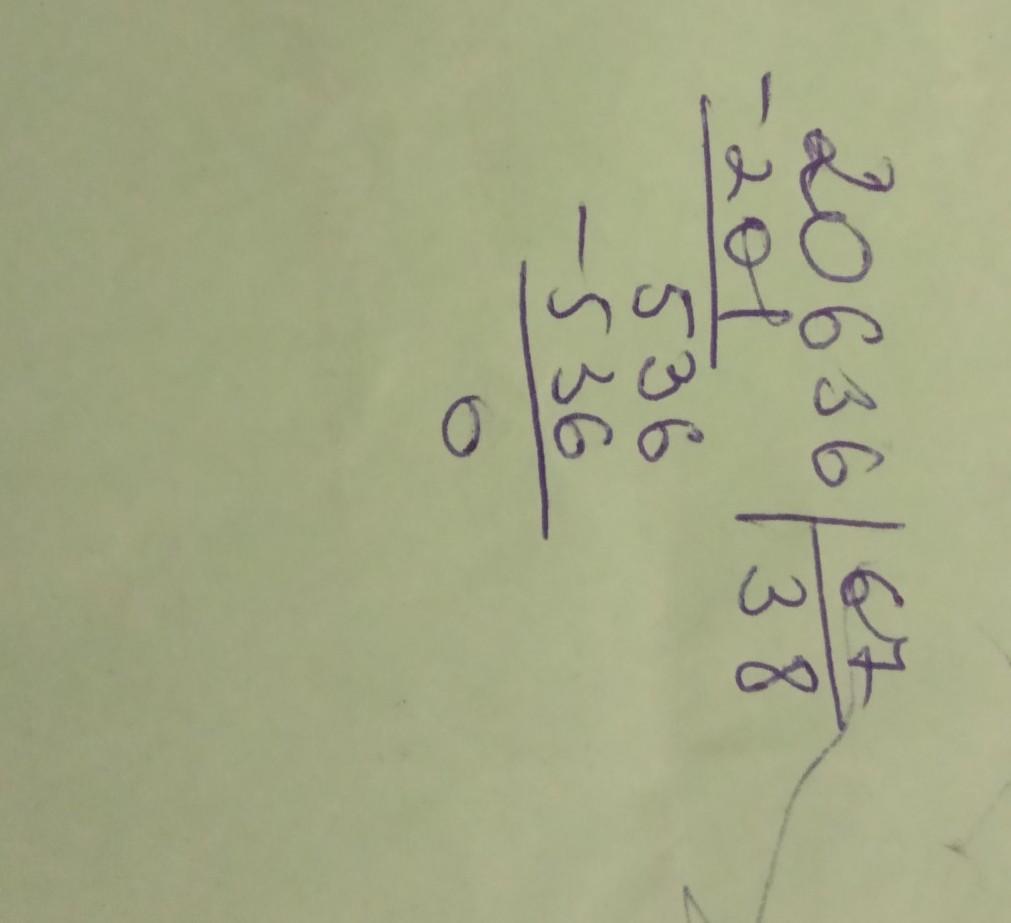 20636 67
-201 38
536
-536
0